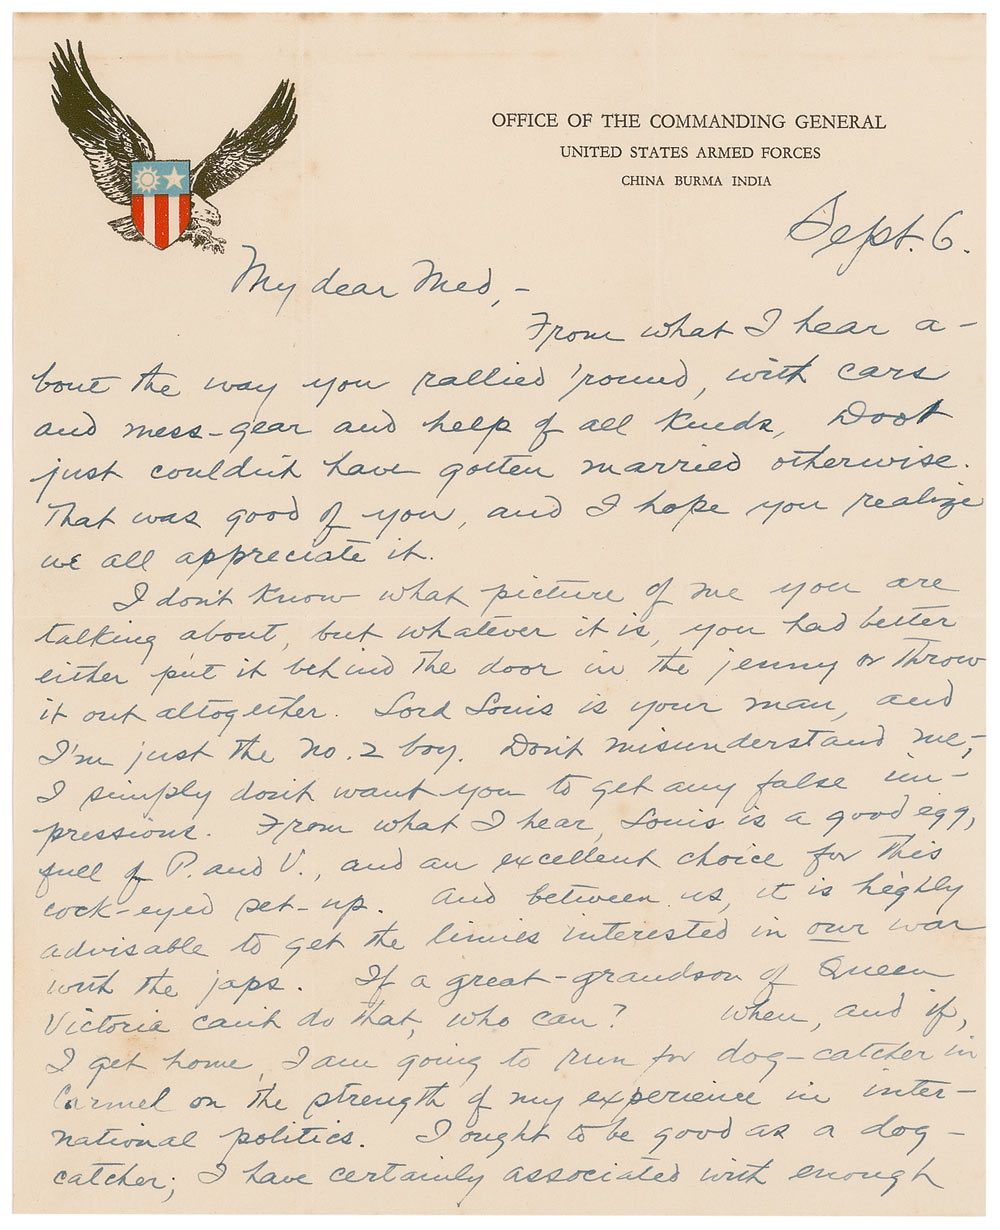 OFFICE OF THE COMMANDING GENERAL
UNITED STATES ARMED FORCES
CHINA BURMA INDIA
Sept. 6.
My dear Med,-
From what I hear a-
bout the way you rallied 'round, with cars
and mess-gear and help of all kinds, Doot
just couldn't have gotten married otherwise.
That was good of you, and I hope you realize
we all appreciate it.
I don't know what picture of me you are
talking about, but whatever it is, you had better
either put it behind the door in the jenny or throw
it out altogether. Lord Louis is your man, and
I'm just the No. 2 boy. Don't misunderstand me,-
I simply don't want you to get any false im-
pressions. From what I hear, Louis is a good egg,
full of P. and V., and an excellent choice for this
cock-eyed set-up. And between us, it is highly
advisable to get the limies interested in our war
with the japs. If a great-grandson of Queen
Victoria can't do that, who can? When, and if,
I get home, I am going to run for dog-catcher in
Carmel on the strength of my experience in inter-
national politics. I ought to be good as a dog-
catcher; I have certainly associated with enough